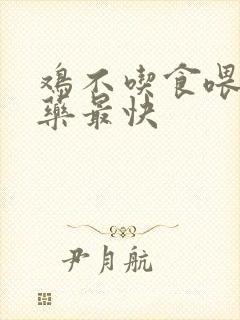 鳮不喫食喂
藥最快
尹月航